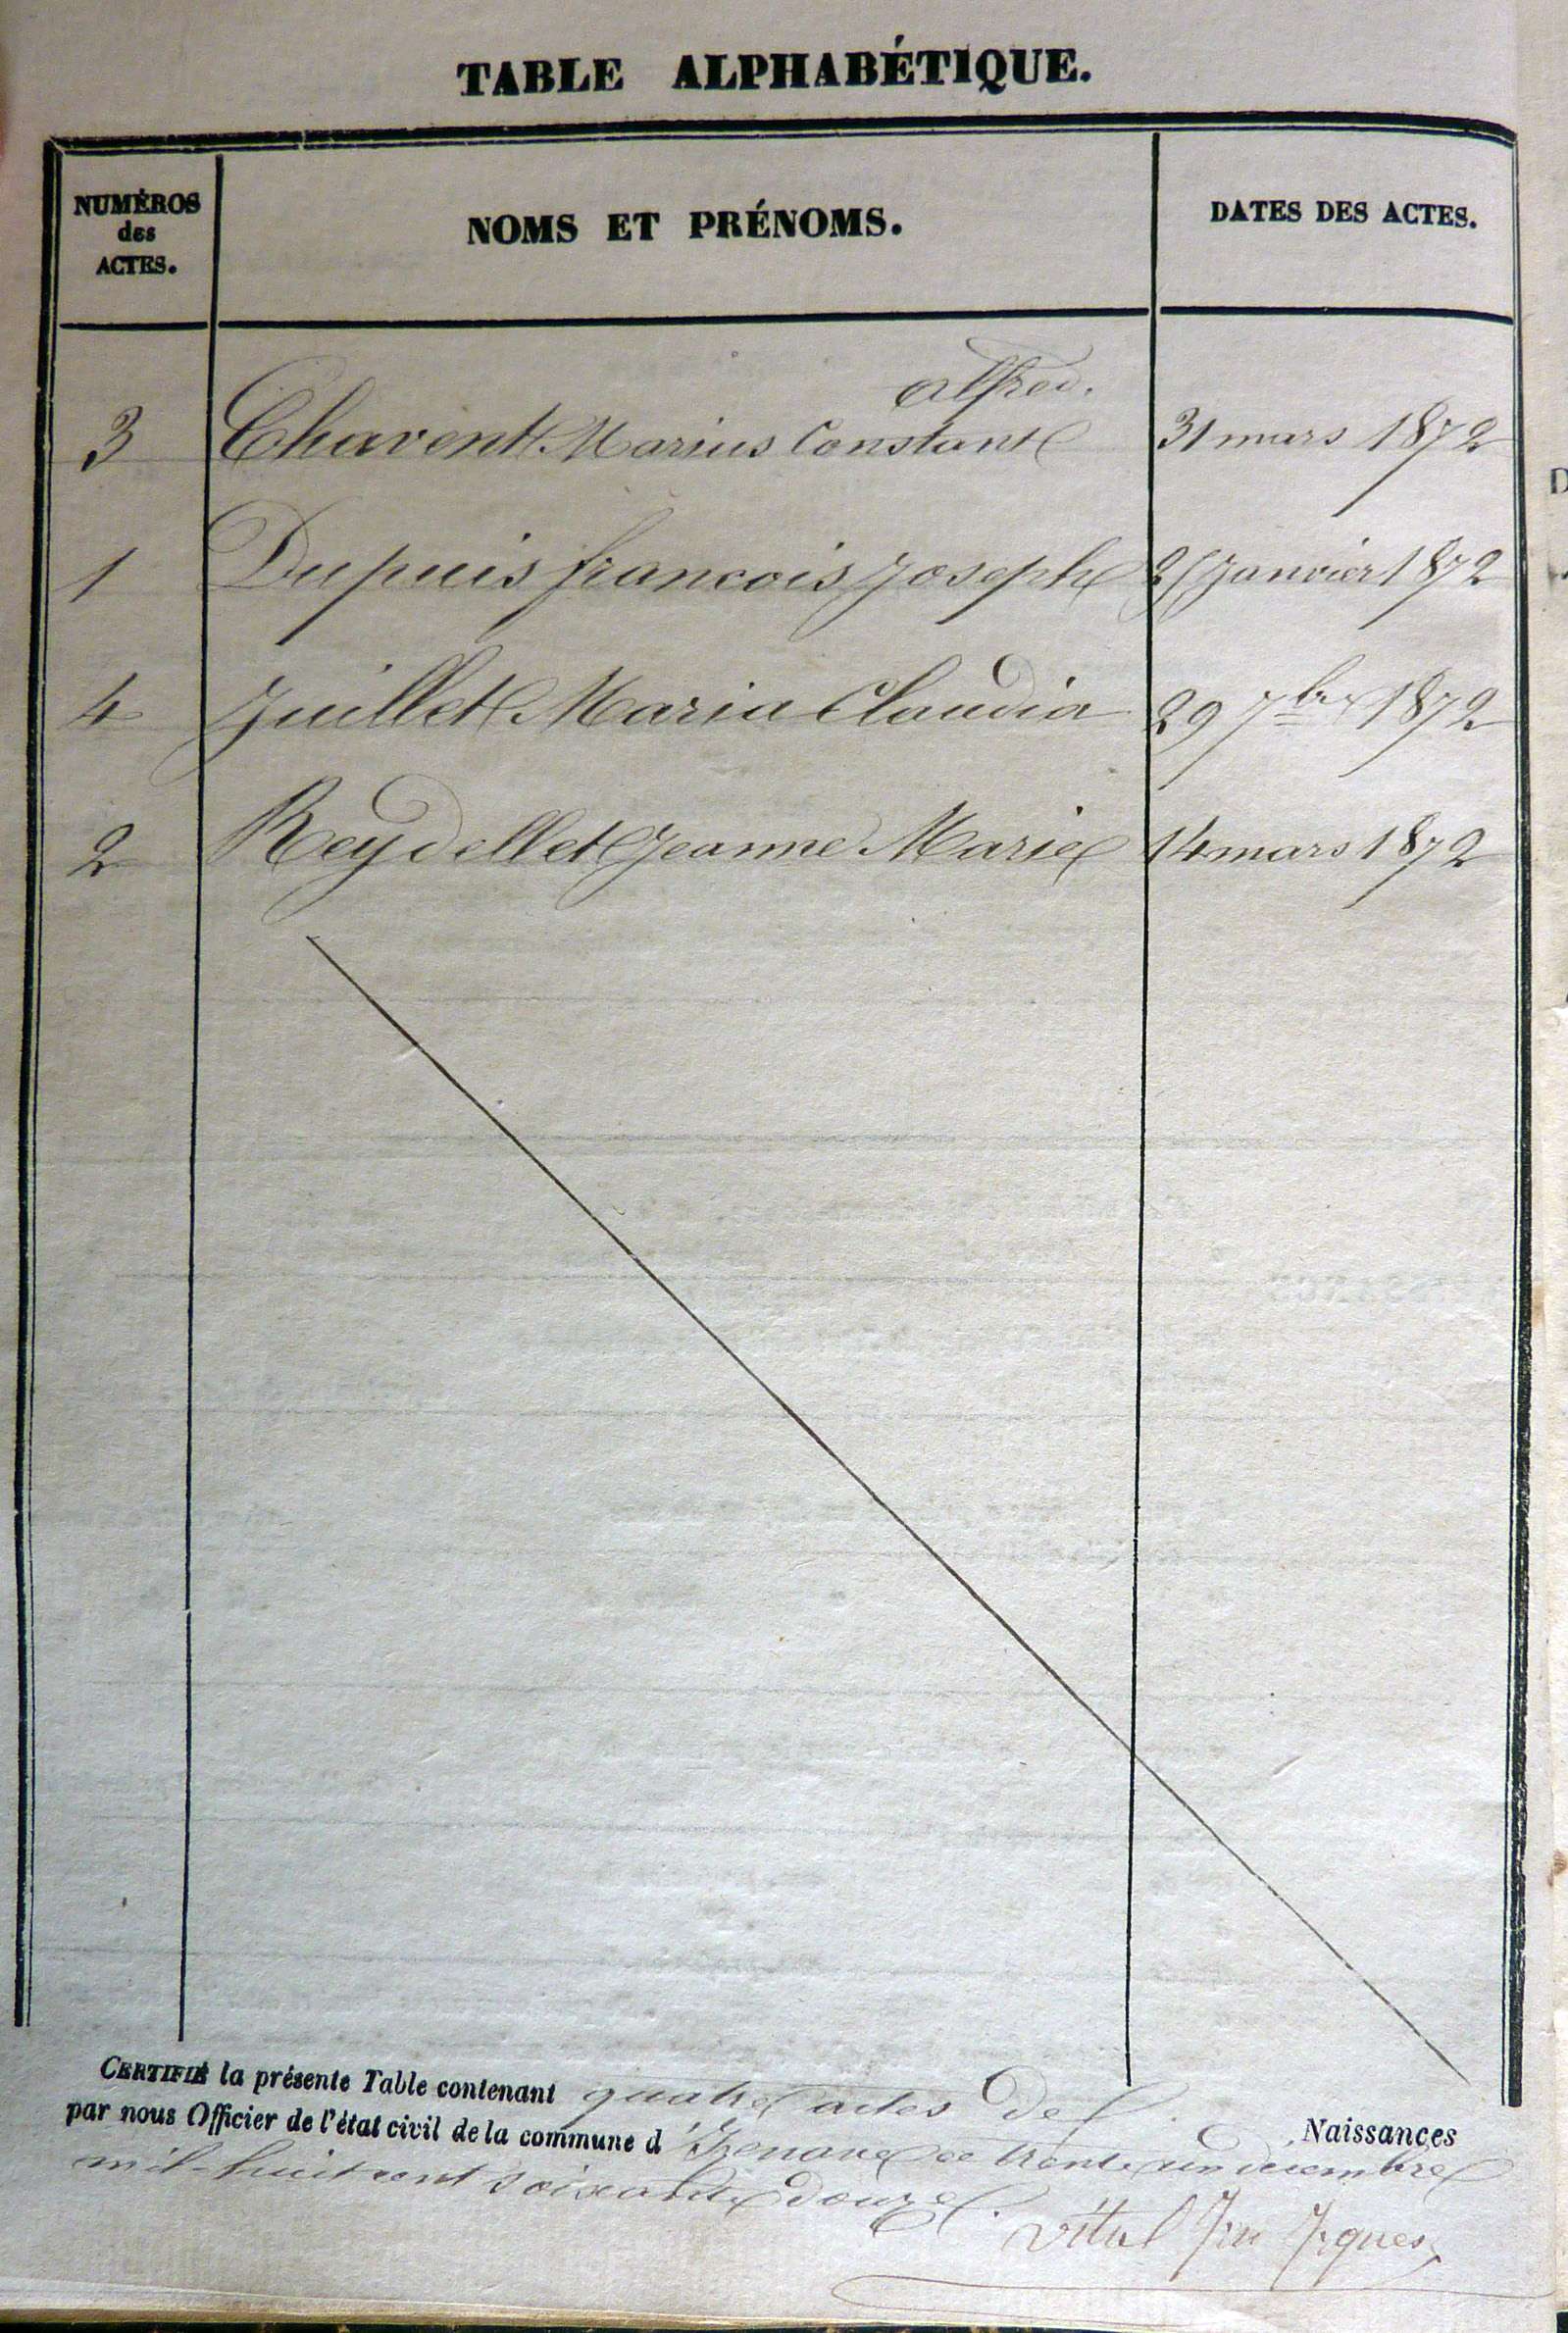 TABLE ALPHABÉTIQUE.
NUMÉROS
des
ACTES.
NOMS ET PRÉNOMS.
DATES DES ACTES.
alfred.
3 Chavent Marius Constant 31 mars 1872
1 Dupuis francois Joseph Janvier 1872
4 Juillet Maria Claudia 29 7bre 1872
2 Reydellet Jeanne Marie 14 mars 1872
CERTIFIÉ la présente Table contenant quatre actes de Naissances
par nous Officier de l'état civil de la commune d' Izenave ce trente un décembre
mil huit cent soixante douze.
vital